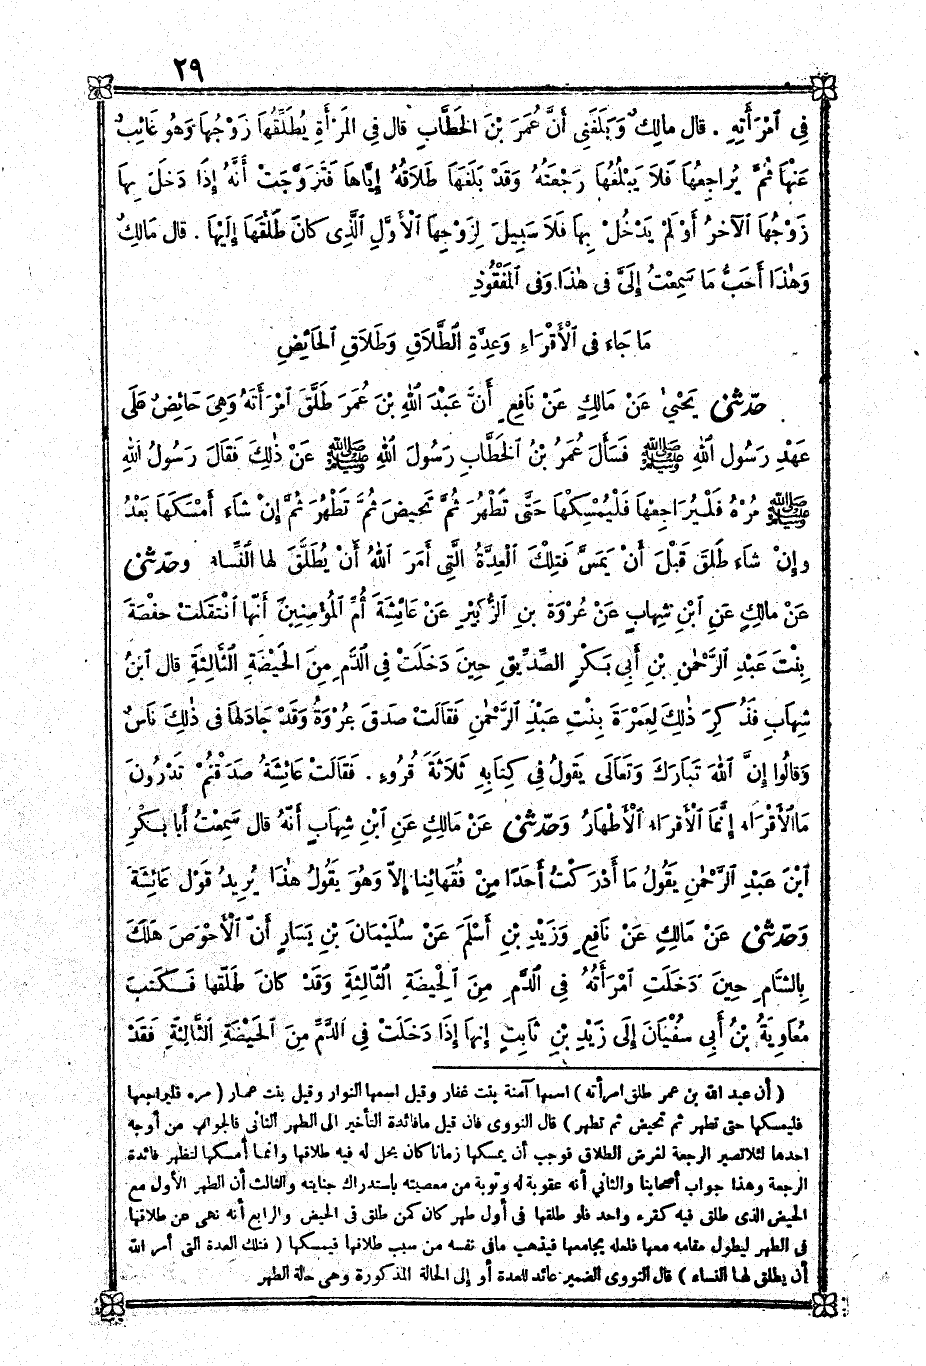 ٢٩
فِى ٱمْرَأَتِهِ . قال مالِكٌ وَبَلَغَنِى أَنَّ عُمَرَ بْنَ الخَطَّابِ قال فِى المَرْأَةِ يُطَلِّقُهَا زَوْجُهَا وَهُوَ غَائِبٌ
عَنْهَا ثُمَّ يُراجِعُهَا فَلَا يَبْلُغُهَا رَجْعَتُهُ وَقَدْ بَلَغَهَا طَلَاقُهُ إِيَّاها فَتَزَوَّجَتْ أَنَّهُ إِذَا دَخَلَ بِها
زَوْجُهَا ٱلآخَرُ أَوْ لَمْ يَدْخُلْ بِهَا فَلَا سَبِيلَ لِزَوْجِهَا ٱلْأَوَّلِ ٱلَّذِى كانَ طَلَّقَهَا إِلَيْهَا . قال مَالِكٌ
وَهٰذَا أَحَبُّ مَا سَمِعْتُ إِلَىَّ فى هٰذَا وَفى ٱلمَفْقُودِ
مَا جَاءَ فى ٱلْأَقْرَاءِ وَعِدَّةِ الطَّلَاقِ وَطَلَاقِ ٱلحَائِضِ
حدّثنى يَحْيىٰ عَنْ مَالِكٍ عَنْ نَافِعٍ أَنَّ عَبْدَ ٱللهِ بْنَ عُمَرَ طَلَّقَ ٱمْرَأَتَهُ وَهِىَ حَائِضٌ عَلَى
عَهْدِ رَسُولِ ٱللهِ ﷺ فَسَأَلَ عُمَرُ بْنُ ٱلخَطَّابِ رَسُولَ ٱللهِ ﷺ عَنْ ذٰلِكَ فَقَالَ رَسُولُ اللهِ
ﷺ مُرْهُ فَلْيُرَاجِعْهَا فَلْيُمْسِكْهَا حَتَّى تَطْهُرَ ثُمَّ تَحِيضَ ثُمَّ تَطْهُرَ ثُمَّ إِنْ شاءَ أَمْسَكَهَا بَعْدُ
وإِنْ شاءَ طَلَّقَ قَبْلَ أَنْ يَمَسَّ فَتِلْكَ ٱلْعِدَّةُ الَّتِى أَمَرَ ٱللهُ أَنْ يُطَلَّقَ لها النِّساء وحدّثنى
عَنْ مالِكٍ عَنِ ٱبْنِ شِهابٍ عَنْ عُرْوَةَ بنِ ٱلزُّبَيْرِ عَنْ عَائِشَةَ أُمِّ ٱلمُؤْمِنِينَ أَنَّها ٱنْتَقَلَتْ حفْصَةَ
بِنْتَ عَبْدِ ٱلرَّحْمٰنِ بْنِ أَبِى بَكْرٍ الصِّدِّيقِ حِينَ دَخَلَتْ فِى ٱلدَّمِ مِنَ ٱلحَيْضَةِ الثَّالِثَةِ قال ٱبْنُ
شِهابٍ فَذُكِرَ ذٰلِكَ لِعَمْرَةَ بِنْتِ عَبْدِ ٱلرَّحْمٰنِ فَقَالَتْ صَدَقَ عُرْوَةُ وَقَدْ جَادَلَها فى ذٰلِكَ نَاسٌ
وَقَالُوا إِنَّ ٱللهَ تَبَارَكَ وَتَعَالَى يَقُولُ فى كِتابِهِ ثَلَاثَةَ قُرُوءٍ . فَقَالَتْ عَائِشَةُ صَدَقْتُمْ تَدْرُونَ
مَا ٱلْأَقْرَاءِ إِنَّمَا ٱلْأَقْرَاء ٱلْأَطْهَارُ وَحدّثنى عَنْ مَالِكٍ عَنِ ٱبْنِ شِهابٍ أَنَّهُ قال سَمِعْتُ أَبا بَكْرِ
ٱبْنَ عَبْدِ ٱلرَّحْمٰنِ يَقُولُ مَا أَدْرَكْتُ أَحَدًا مِنْ فُقَهَائِنا إِلَّا وَهُوَ يَقُولُ هٰذَا يُرِيدُ قَوْلَ عَائِشَةَ
وَحدّثنى عَنْ مَالِكٍ عَنْ نَافِعٍ وَزَيْدِ بْنِ أَسْلَمَ عَنْ سُلَيْمَانَ بْنِ يَسَارٍ أَنَّ ٱلْأَحْوَصَ هَلَكَ
بِالشَّامِ حِينَ دَخَلَتِ ٱمْرَأَتُهُ فِى ٱلدَّمِ مِنَ ٱلحَيْضَةِ الثَّالِثَةِ وَقَدْ كانَ طَلَّقَها فَكَتَبَ
مُعَاوِيَةُ بْنُ أَبِى سُفْيَانَ إِلَى زَيْدِ بْنِ ثَابِتٍ إِنها إِذَا دَخَلَتْ فِى ٱلدَّمِ مِنَ ٱلحَيْضَةِ الثَّالِثَةِ فَقَدْ
( أن عبد الله بن عمر طلق امرأته ) اسمها آمنة بنت غفار وقيل اسمها النوار وقيل بنت عمار ( مره فليراجعها
فليمسكها حتى تطهر ثم تحيض ثم تطهر ) قال النووى فان قيل مافائدة التأخير الى الطهر الثانى فالجواب من أوجه
احدها لئلا تصير الرجعة لغرض الطلاق فوجب أن يمسكها زمانا كان يحل له فيه طلاقها وانما أمسكها لتظهر فائدة
الرجعة وهذا جواب أصحابنا والثاني أنه عقوبة له وتوبة من معصيته باستدراك جنايته والثالث أن الطهر الأول مع
الحيض الذى طلق فيه كقرء واحد فلو طلقها فى أول طهر كان كمن طلق فى الحيض والرابع أنه نهى عن طلاقها
فى الطهر ليطول مقامه معها فلعله يجامعها فيذهب مافى نفسه من سبب طلاقها فيمسكها ( فتلك العدة التى أمر الله
أن يطلق لها النساء ) قال النووى الضمير عائد للعدة أو إلى الحالة المذكورة وهى حالة الطهر